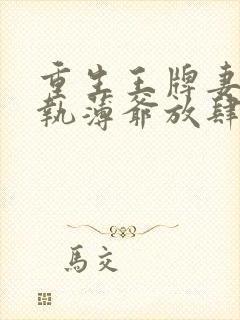 重生王牌妻
執薄爺放肆
馬交